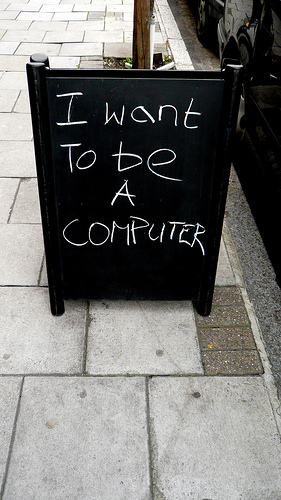 I want
To be
A
COMPUTER